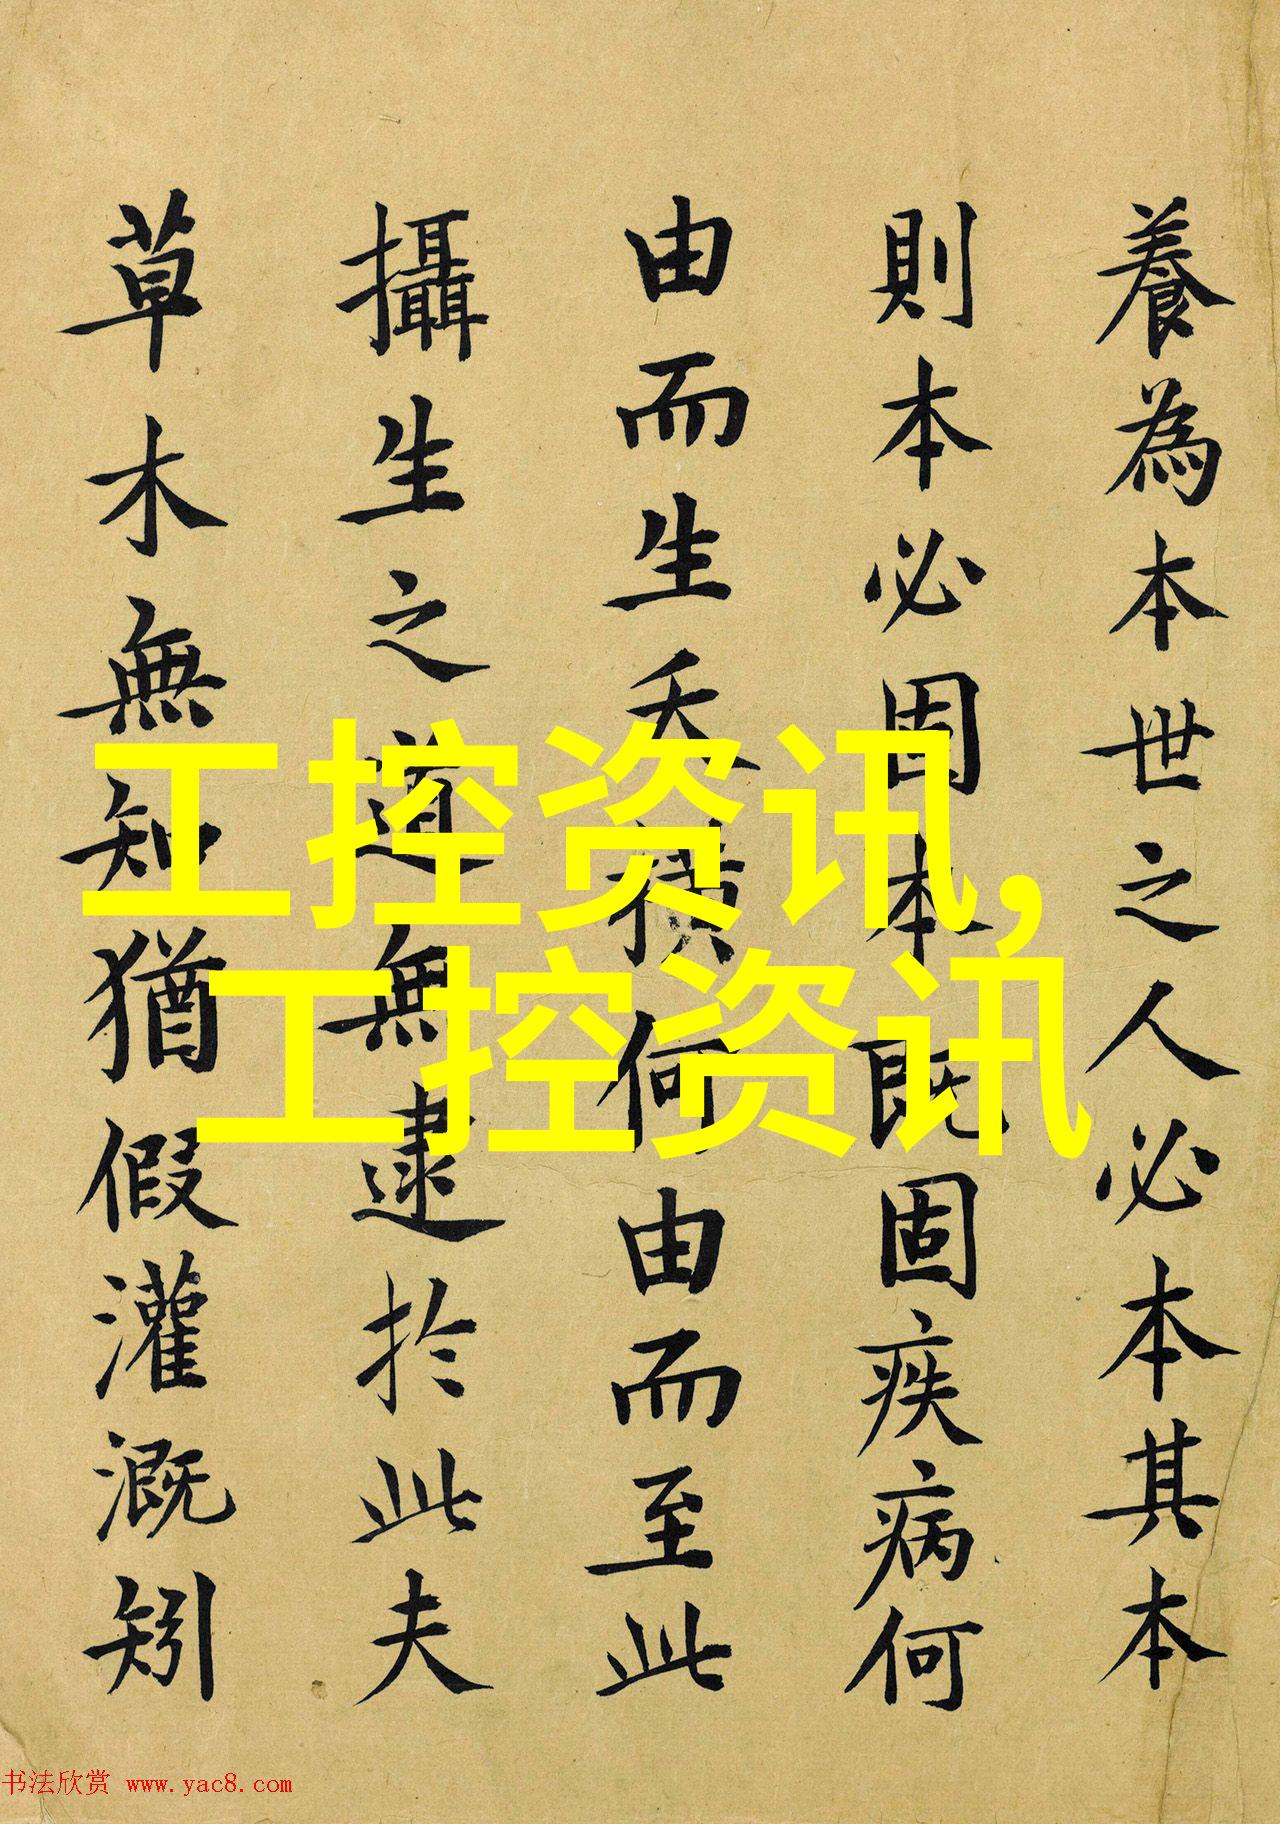 養為本世之人必本其本
則本必固本既固疾病何
由而生夭橫何由而至此
攝生之道無逮於此夫
草木無知猶假灌溉矧
工控资讯,
工控资讯
书法欣赏 www.yac8.com